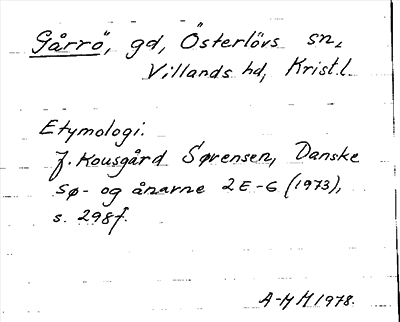 Gårrö, gd, Österlövs sn,
Villands hd, Krist.l.
Etymologi.
J. Kousgård Sørensen, Danske
sø- og ånavne 2 E-G (1973),
s. 298f.
A-H H 1978.